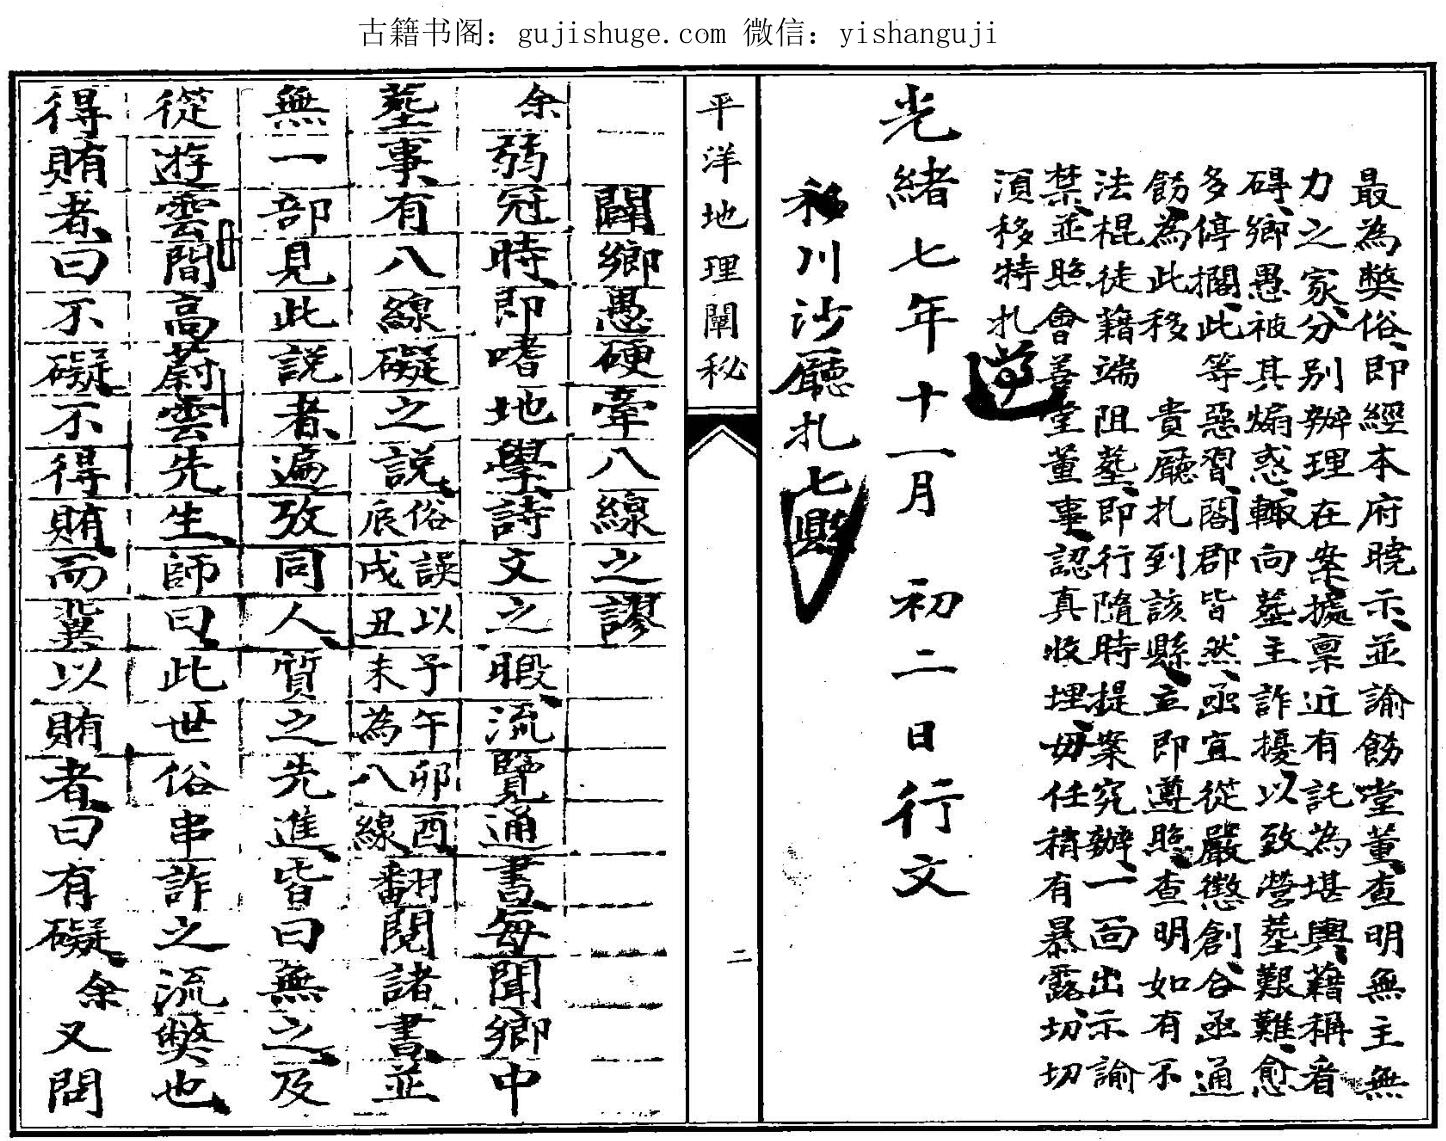 古籍书阁：gujishuge.com 微信：yishanguji
最為獘俗、即經本府曉示、並諭飭堂董、查明無主無
力之家、分别辦理在案、據稟近有託為堪輿、藉稱看
碍、鄉愚被其煽惑、輙向塟主詐擾、以致營塟艱難、愈
多停擱、此等惡習、閤郡皆然、亟宜從嚴懲創、合亟通
飭、為此移　貴廳扎到該縣、立即遵照、查明如有不
法棍徒藉端阻塟、即行隨時提案究辦、一面出示諭
禁、並照會善堂董事、認真收埋、毋任稍有暴露、切切
湏移特扎
遵
光緒七年十一月　初二日行文
移川沙廳扎七縣
平洋地理闡秘
二
闢鄉愚硬牽八線之謬
余弱冠時、即嗜地學、詩文之暇、流覽通書、每聞鄉中
塟事有八線礙之説、俗誤以子午卯酉辰戌丑未為八線翻閱諸書、並
無一部見此説者、遍攷同人、質之先進、皆曰無之、及
從遊雲間高蔚雲先生、師曰、此世俗串詐之流獘也、
得賄者、曰不礙、不得賄、而冀以賄者、曰有礙、余又問